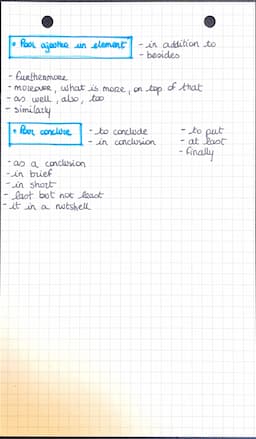 • Pour ajouter un element - in addition to
- besides
- furthermore
- moreover, what is more, on top of that
- as well, also, too
- similarly
• Pour conclure - to conclude - to put
- in conclusion - at last
- finally
- as a conclusion
- in brief
- in short
- last but not least
- it in a nutshell